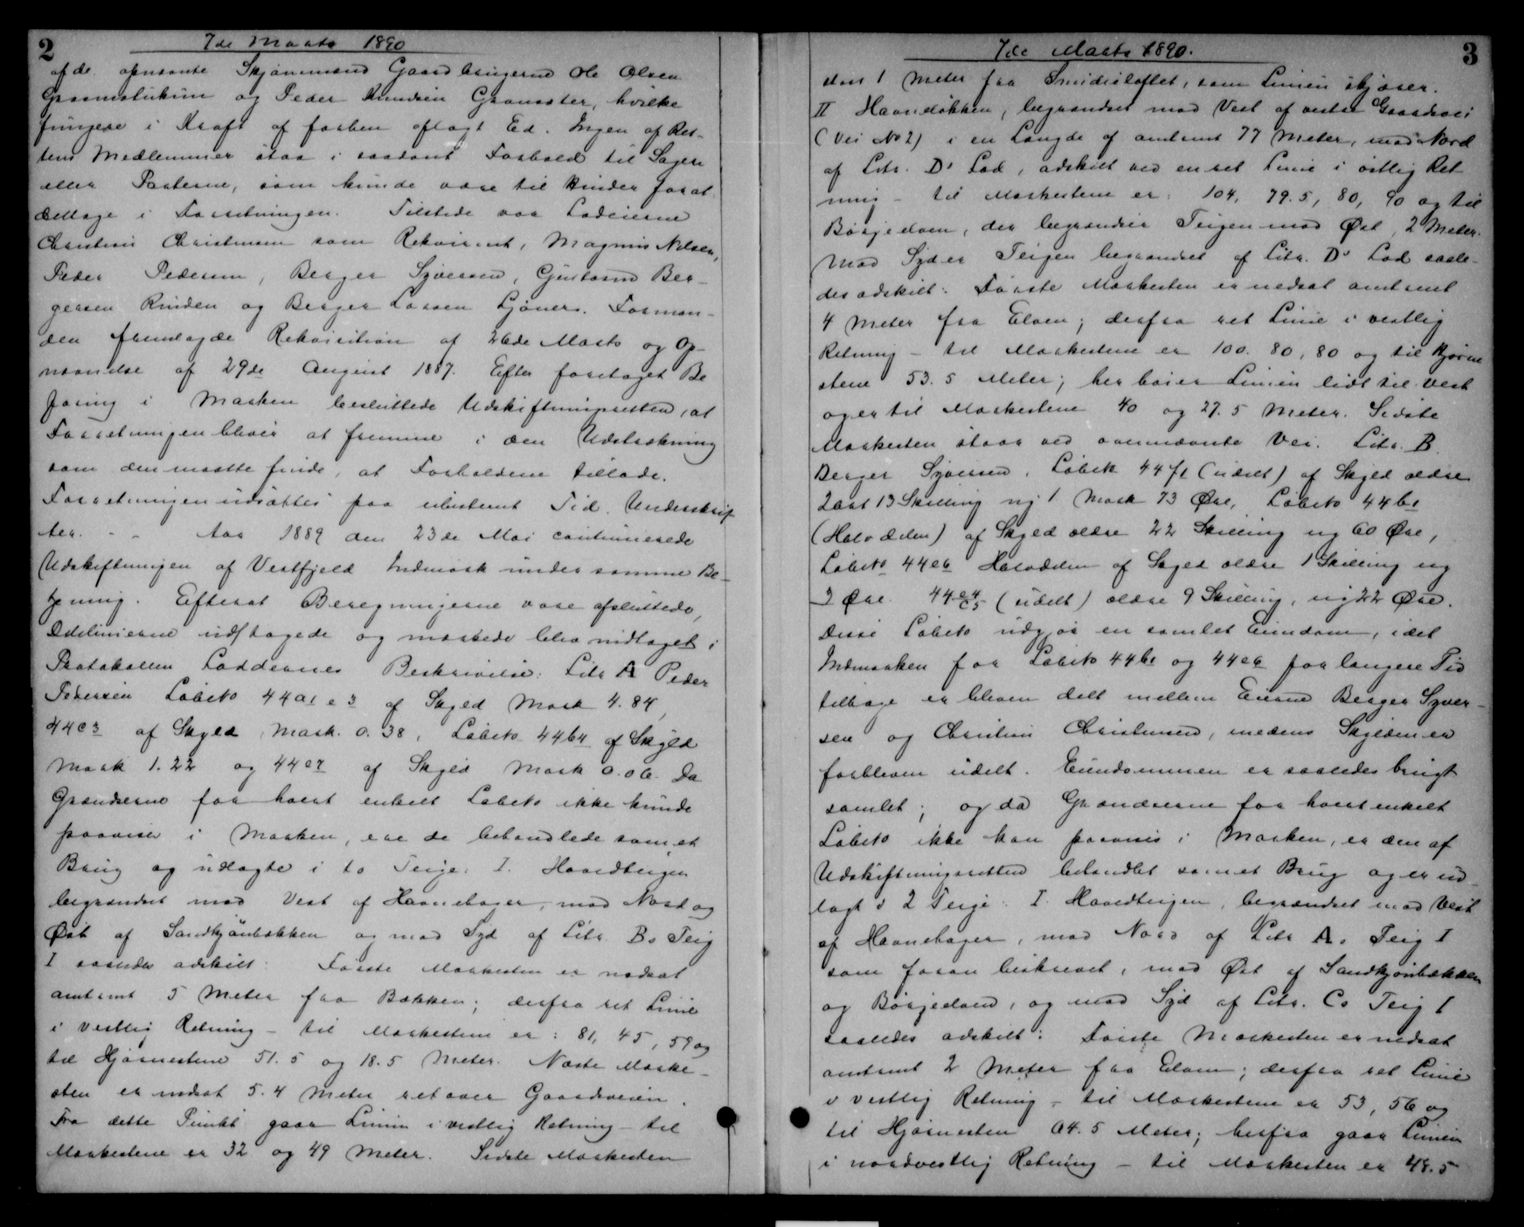 2
7de Marts 1890
af de opnævnte Skjønsmænd Gaardbrugerne Ole Olsen
og Peder Knudsen Granaster, hvilke
fungere i Kraft af forhen aflagt Ed. Ingen af Ret-
tens Medlemmer staa i saadant Forhold til Sagen
eller Parterne, som kunde være til Hinder for at
deltage i Forretningen. Tilstede var Lodeierne
Christian Christensen som Rekvirent, Magnus Nilsen,
Peder Pedersen, Berger Syversen, Gjertsine Ber-
gersen Rinden og Berger Larsen Ljøner. Forman-
den fremlagde Rekvisition af 26de Marts og Op-
nævnelse af 29de August 1887. Efter foretaget Be
faring i Marken besluttede Udskiftningsretten, at
Forretningen bliver at fremme i den Udstrækning
som den maatte finde, at Forholdene tillade.
Forretningen udsattes paa ubestemt Tid. Underskrif
ter. - - Aar 1889 den 23de Mai continuerede
Udskiftningen af Vestfjeld Indmark under samme Be-
tjening. Efterat Beregningerne vare afsluttede,
Delelinierne udstagede og mærkede blev indtaget i
Protokollen Loddernes Beskrivelse: Litr A Peder
Pedersen Løbeto 44a1 e3 af Skyld Mark 4.84,
44c3 af Skyld Mark 0.38, Løbeto 44b4 af Skyld
Mark 1.22 og 44e7 af Skyld Mark 0.06. Da
Grændserne for hvert enkelt Løbeto ikke kunde
paavises i Marken, ere de behandlede som et
Brug og udlagte i to Teige. I. Hovedteigen
begrændset mod Vest af Havnehager, mod Nord og
Øst af Sandkjønbækken og mod Syd af Litr. Bs Teig
I saaledes adskilt: Første Markesten er nedsat
omtrent 5 Meter fra Bækken; derfra ret Linie
i vestlig Retning - til Markestene er: 81, 45, 59 og
til Hjørnestene 51.5 og 18.5 Meter. Næste Marke-
sten er nedsat 5.4 Meter ret over Gaardsveien.
Fra dette Punkt gaar Linien i vestlig Retning - til
Markestene er 32 og 49 Meter. Sidste Markesten
3
7de Marts 1890.
1 Meter fra Smidesløftet, som Linien skjærer.
II Haandløkken, begrændset mod Vest af vestre Gaardsvei
(Vei No 2) i en Længde af omtrent 77 Meter, mod Nord
af Litr. Ds Lod, adskilt ved en ret Linie i østlig Ret
ning - til Markestene er: 104, 79.5, 80, 90 og til
Børjeelven, der begrændser Teigen mod Øst, 2 Meter.
Mod Syd er Teigen begrændset af Litr. Ds Lod saale-
des adskilt: Første Markesten er nedsat omtrent
4 Meter fra Elven; derfra ret Linie i vestlig
Retning - til Markestene er 100. 80, 80 og til Hjørne
stene 53.5 Meter; her bøier Linien lidt til Vest
og er til Markestene 40 og 27.5 Meter. Sidste
Markesten staar ved ovennævnte Vei. Litr. B.
Berger Syversen. Løbeto 44f1 (udelt) af Skyld ældre
2 Ort 13 Skilling ny 1 Mark 73 Øre, Løbeto 44b1
(Halvdelen) af Skyld ældre 22 Skilling ny 60 Øre,
Løbeto 44e6 Halvdelen af Skyld ældre 1 Skilling ny
3 Øre. 44 (udelt) ældre 9 Skilling, ny 22 Øre.
Disse Løbeto udgjør en samlet Eiendom, idet
Indmarken for Løbeto 44b1 og 44e6 for længere Tid
tilbage er bleven delt mellem Eierne Berger Syver-
sen og Christian Christensen, medens Skylden er
forbleven udelt. Eiendommen er saaledes brugt
samlet; og da Grændserne for hvert enkelt
Løbeto ikke kan paavises i Marken, er den af
Udskiftningsretten behandlet som et Brug og er ud-
lagt i 2 Teige: I. Hovedteigen, begrændset mod Vest
af Havnehager, mod Nord af Litr As Teig I
som foran beskrevet, mod Øst af Sandkjønbækken
og Børjeelven, og mod Syd af Litr. Cs Teig I
saaledes adskilt: Første Markesten er nedsat
omtrent 2 Meter fra Elven; derfra ret Linie
i vestlig Retning - til Markestene er 53, 56 og
til Hjørnesten 64.5 Meter; herfra gaar Linien
i nordvestlig Retning - til Markesten er 48.5